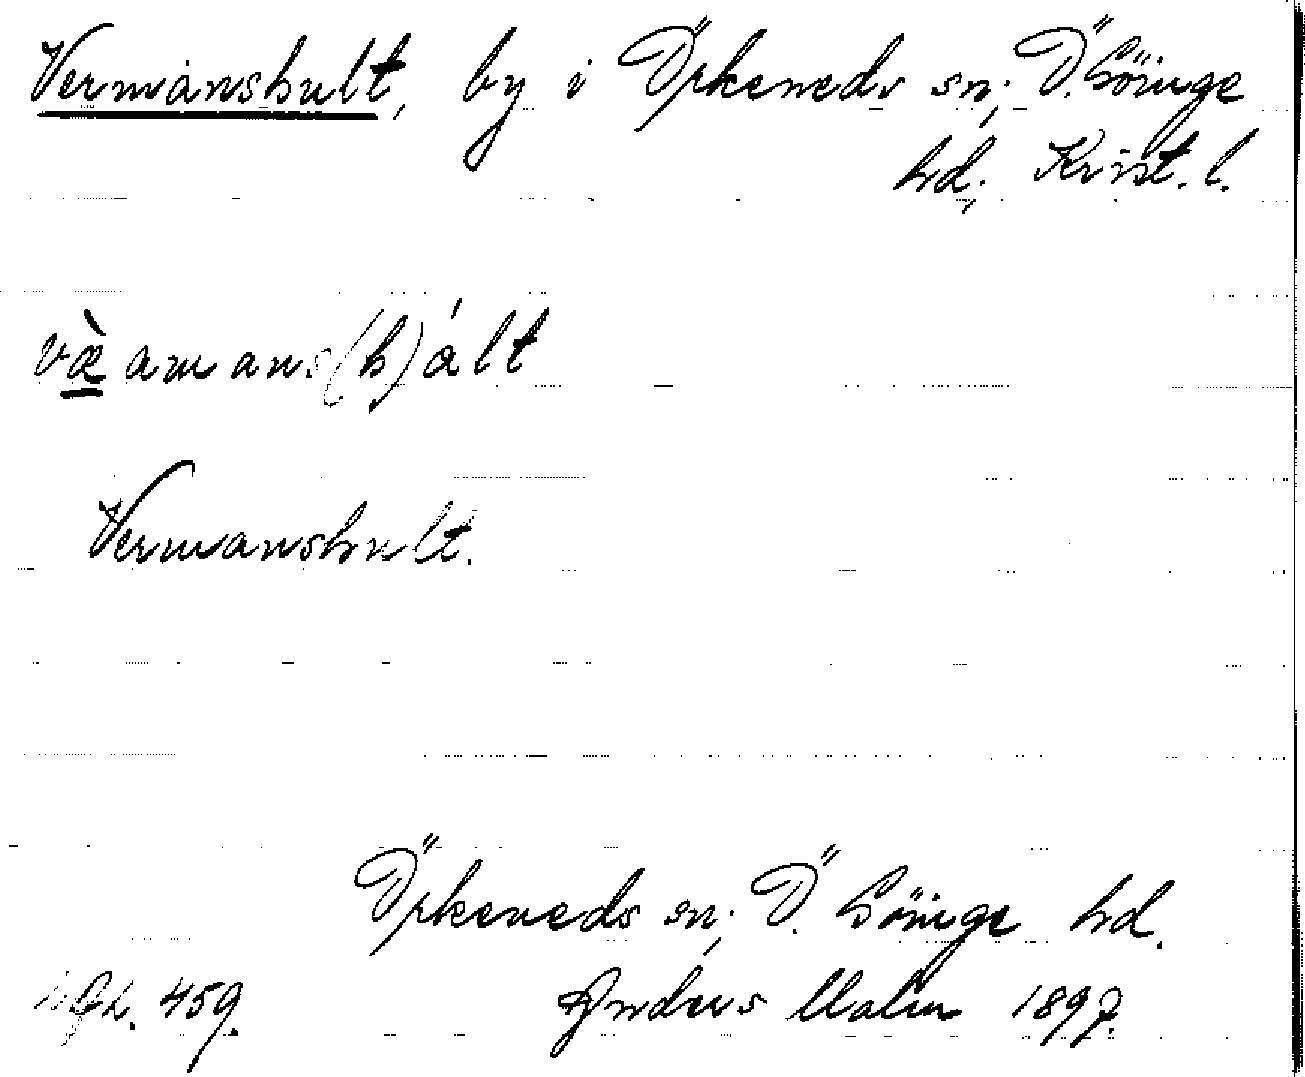 Vermanshult, by i Örkeneds sn; Ö. Göinge
hd; Krist. l.
væ̀ amans(h)ált
Vermanshult.
Örkeneds sn; Ö. Göinge hd.
459. Anders Malm 1897.